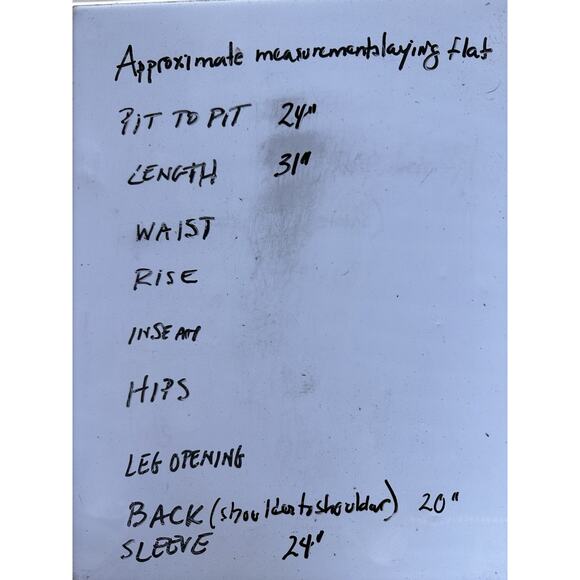 Approximate measurements laying flat
PIT TO PIT 24"
LENGTH 31"
WAIST
RISE
INSEAM
HIPS
LEG OPENING
BACK (shoulder to shoulder) 20"
SLEEVE 24"